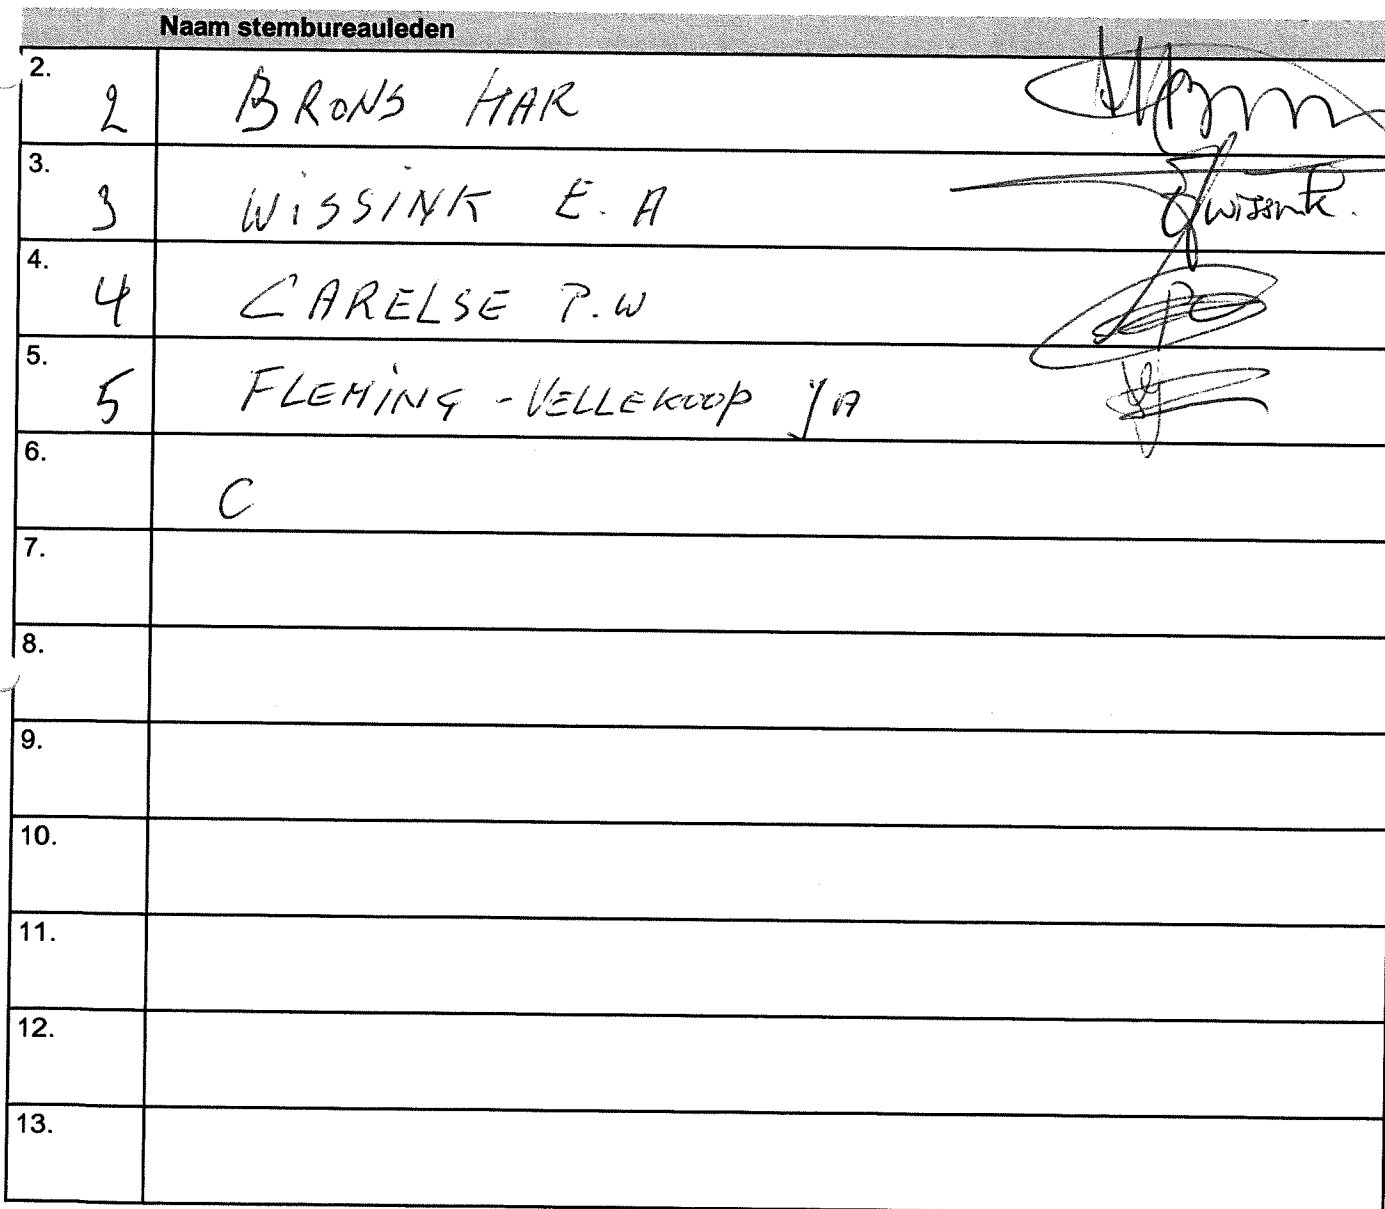 Naam stembureauleden
2. 2 BRONS HAR
3. 3 WiSSiNK E. A Wissink.
4. 4 CARELSE P.W
5. 5 FLEMiNG - VELLEKOOP JA
6. C
7.
8.
9.
10.
11.
12.
13.